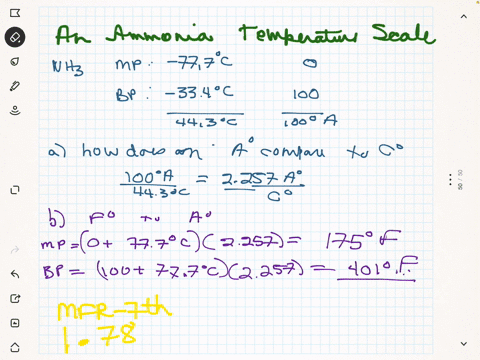 An Ammonia Temperature Scale
NH3 MP: -77,7°C 0
BP: -33.4°C 100
44.3°C 100°A
a) how does on: A° compare to C°
100°A / 44.3°C = 2.257 A° / C°
b) F° to A°
MP=(0+ 77.7°C)(2.257)= 175° F
BP = (100+ 77.7°C)(2.257)= 401°.F.
MFR-7th
1.78
50 / 50